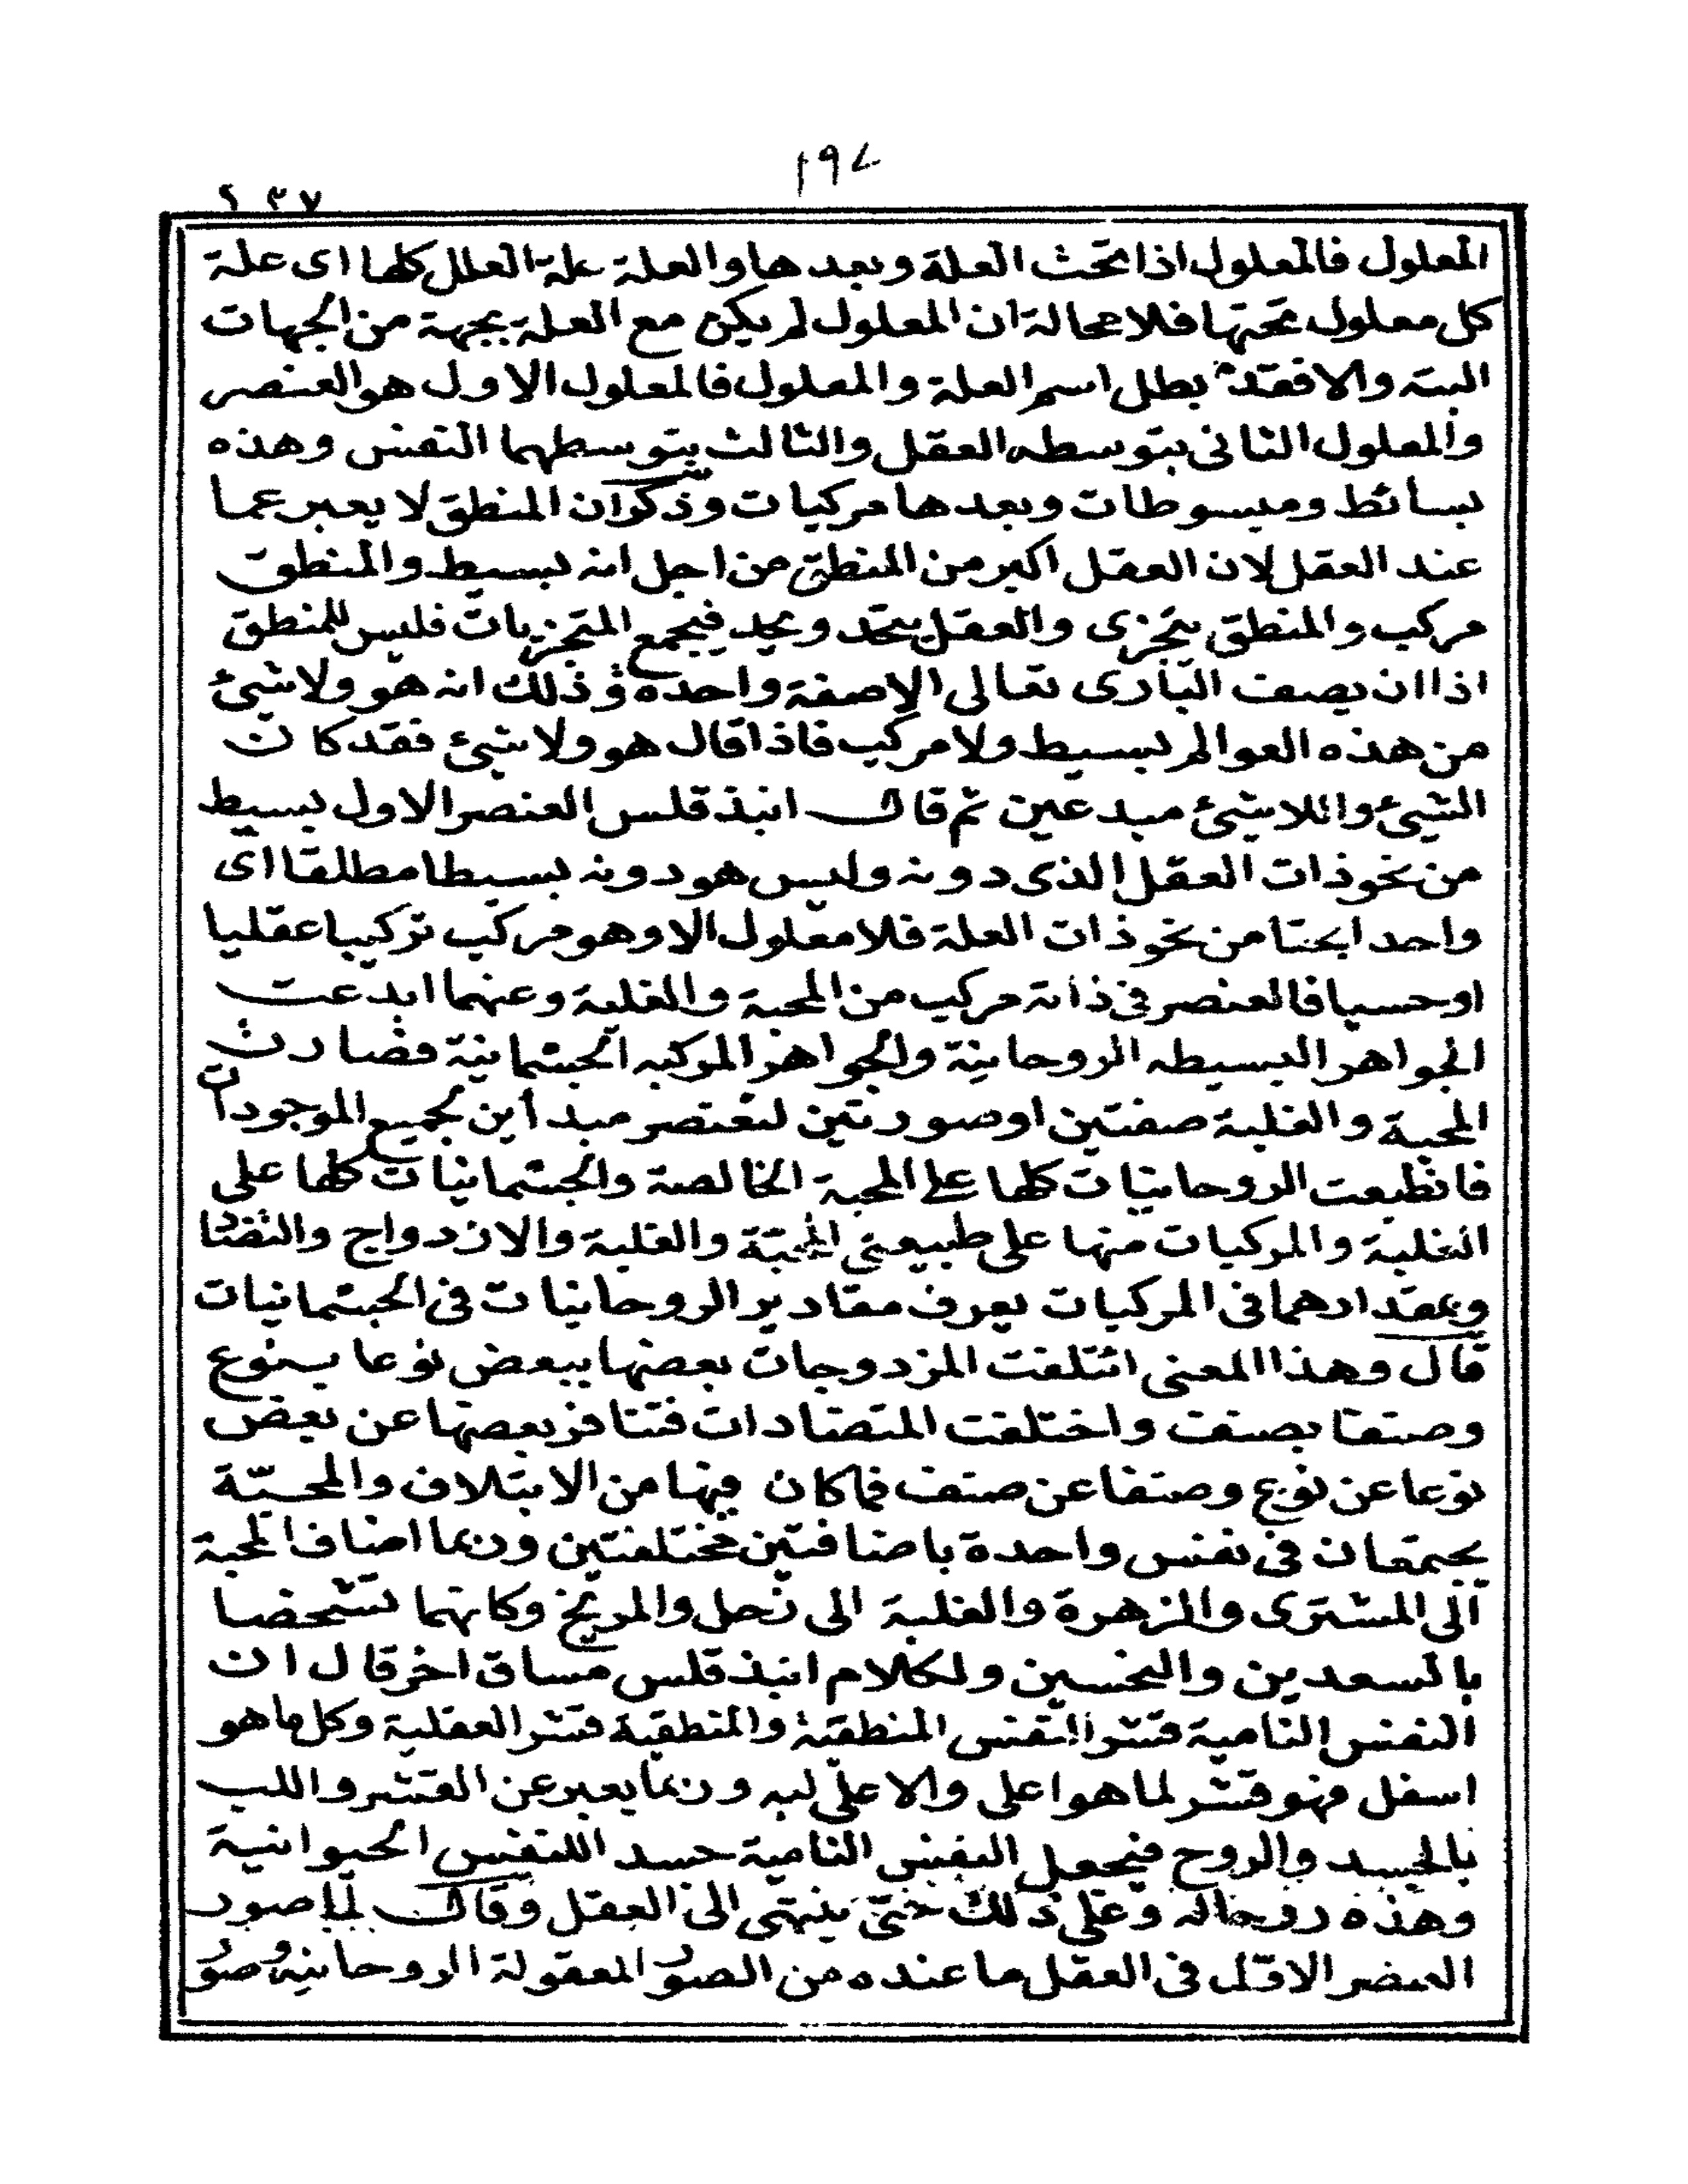 ١٩٧
٢٣٧
المعلول فالمعلول اذا تحت العلة وبعدها والعلة علة العلل كلها اى علة
كل معلول تحتها فلا محالة ان المعلول لم يكن مع العلة بجهة من الجهات
البتة والا فقد بطل اسم العلة والمعلول فالمعلول الاول هو العنصر
والمعلول الثانى بتوسطه العقل والثالث بتوسطهما النفس وهذه
بسائط ومبسوطات وبعدها مركبات وذكر ان المنطق لا يعبر عما
عند العقل لان العقل اكبر من المنطق من اجل انه بسيط والمنطق
مركب والمنطق يتجزى والعقل يتحد ويحد فيجمع المتجزيات فليس للمنطق
اذا ان يصف البارى تعالى الاصفة واحدة و ذلك انه هو ولا شئ
من هذه العوالم بسيط ولا مركب فاذا قال هو ولا شئ فقد كان
الشئ واللاشئ مبدعين ثم قال انبذقلس العنصر الاول بسيط
من نحو ذات العقل الذى دونه وليس هو دونه بسيطا مطلقا اى
واحدا بحتا من نحو ذات العلة فلا معلول الا وهو مركب تركيبا عقليا
او حسيا فالعنصر فى ذاته مركب من المحبة والغلبة وعنهما ابدعت
الجواهر البسيطه الروحانية والجواهر المركبه الجسمانية فصارت
المحبة والغلبة صفتين او صورتين لعنصر مبدأين لجميع الموجودات
فانطبعت الروحانيات كلها على المحبة الخالصة والجسمانيات كلها على
الغلبة والمركبات منها على طبيعتى المحبة والغلبة والازدواج والتضاد
وبمقدارهما فى المركبات يعرف مقادير الروحانيات فى الجسمانيات
قال وهذا المعنى ائتلفت المزدوجات بعضها ببعض نوعا بنوع
وصنفا بصنف واختلفت المتضادات فتنافر بعضها عن بعض
نوعا عن نوع وصنفا عن صنف فما كان فيها من الايتلاف والمحبّة
يجتمعان فى نفس واحدة باضافتين مختلفتين وربما اضاف المحبة
الى المشترى والزهرة والغلبة الى زحل والمريخ وكانهما تشخصا
بالسعدين والنحسين ولكلام انبذقلس مساق اخر قال ان
النفس النامية قشر النفس المنطقية والمنطقية قشر العقلية وكل ما هو
اسفل فهو قشر لما هو اعلى والاعلى لبه وربما يعبر عن القشر واللب
بالجسد والروح فيجعل النفس النامية جسد اللنفس الحيوانية
وهذه روحاله وعلى ذلك حتى ينتهى الى العقل وقال لما صور
العنصر الاول فى العقل ما عنده من الصور المعقولة الروحانية وصور